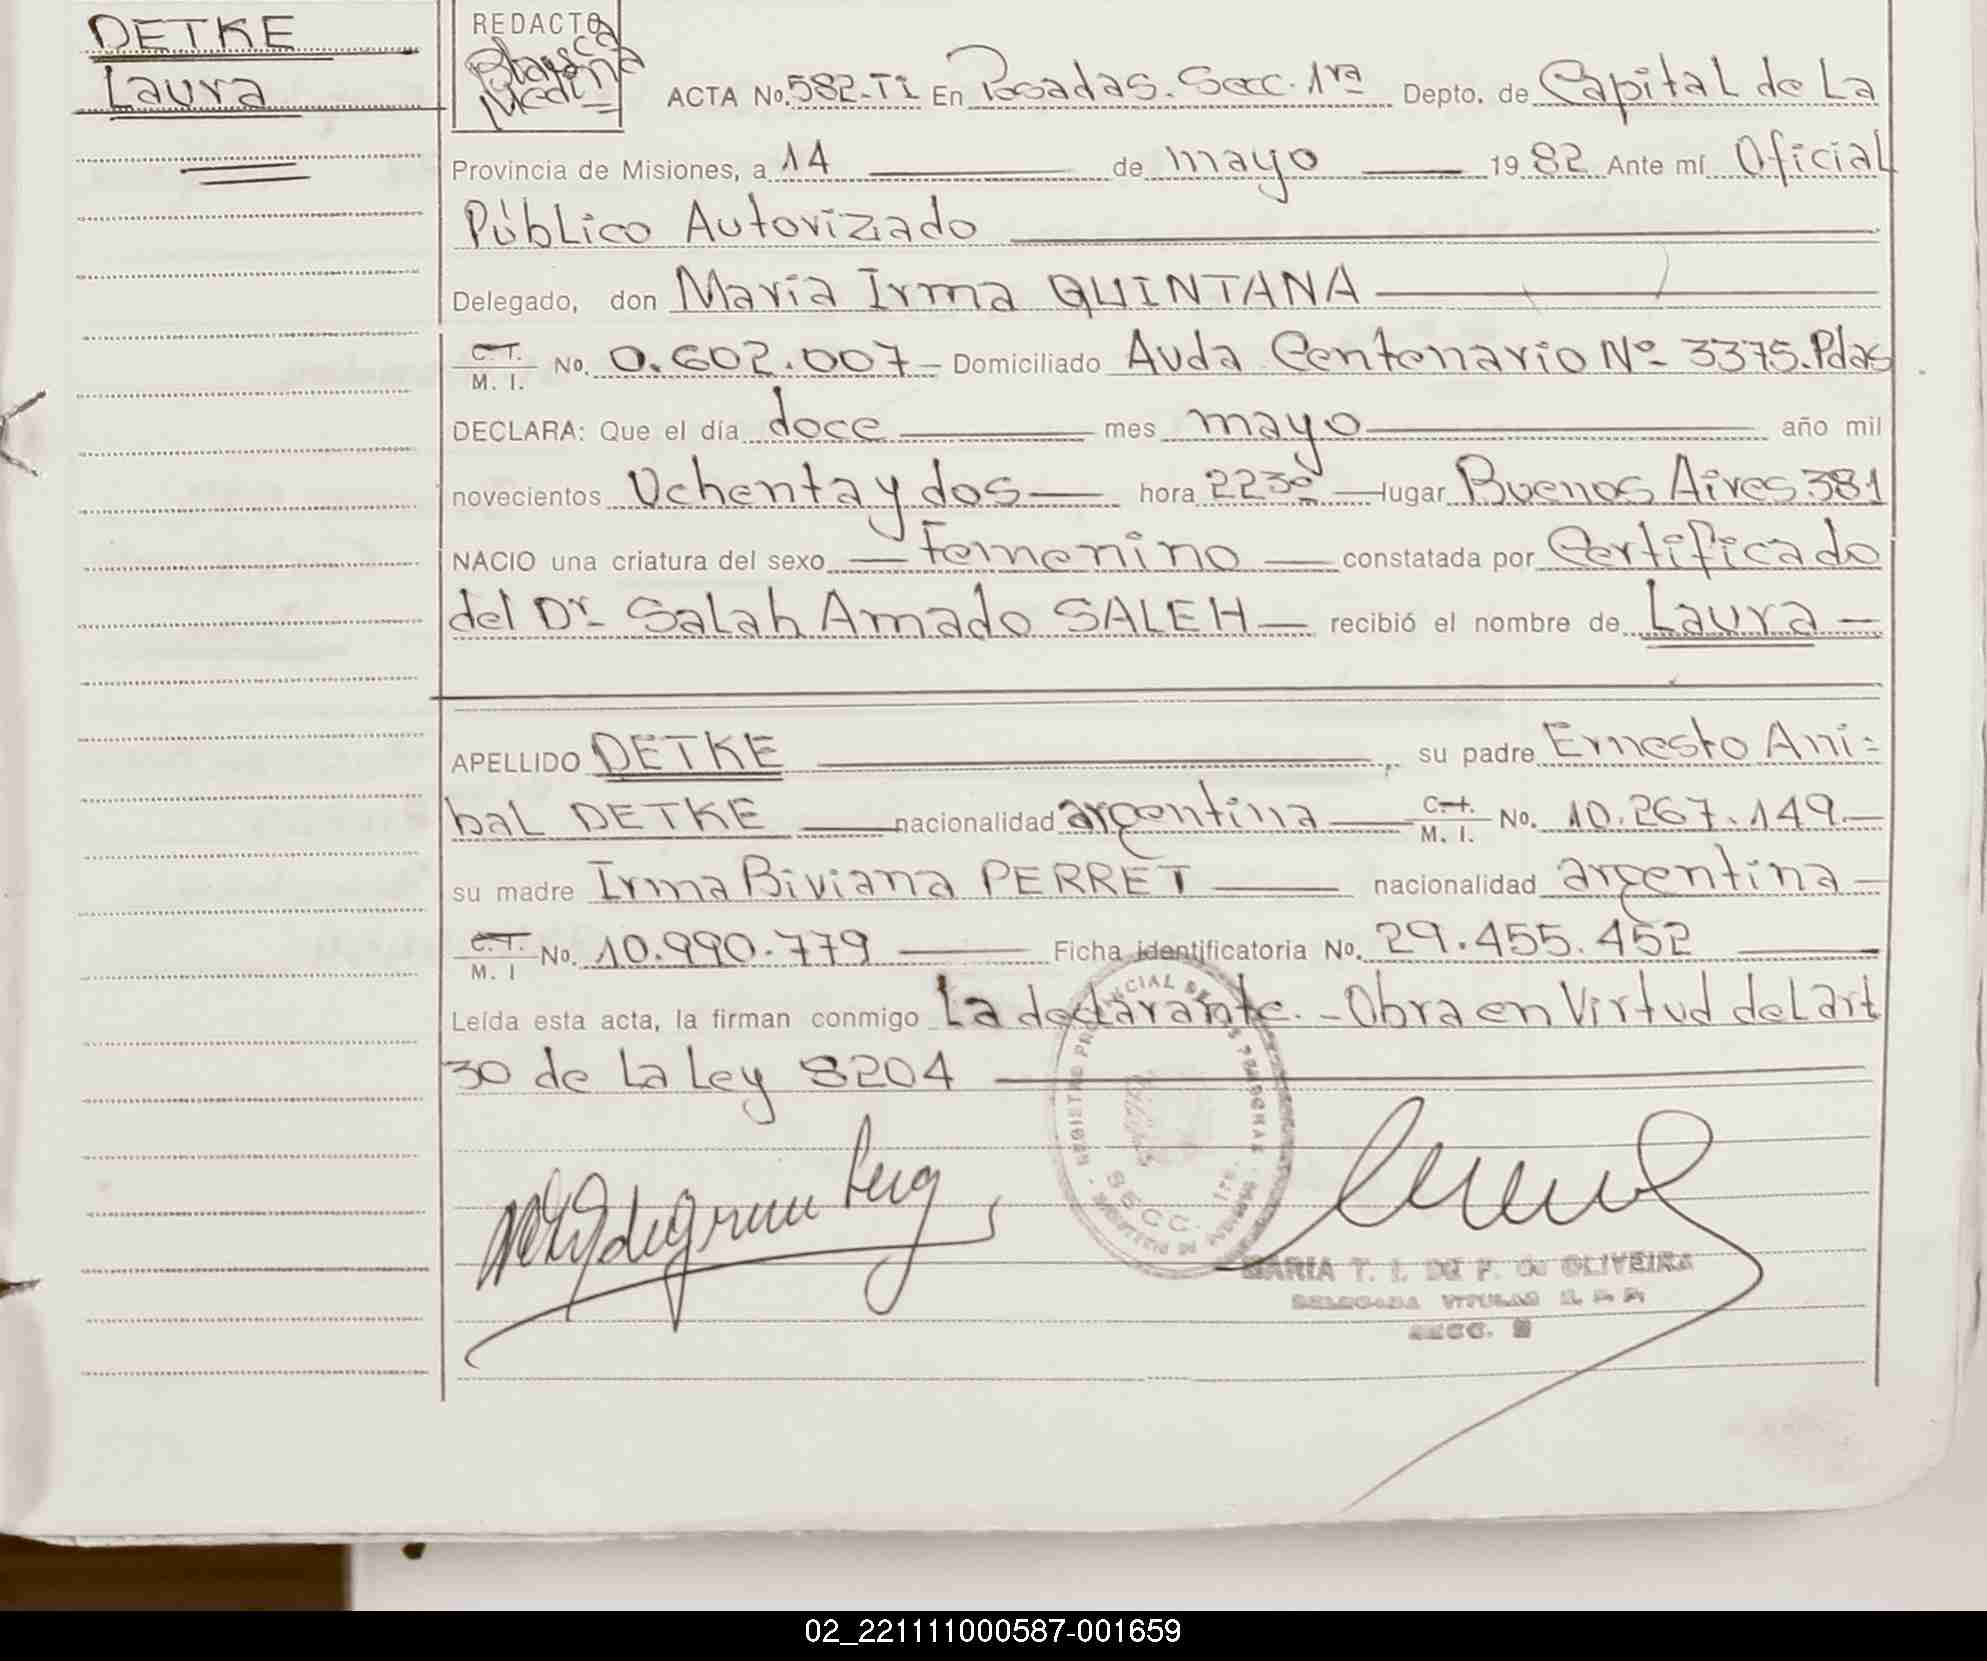 DETKE
Laura
REDACTO
Blanca
Medina
ACTA No. 582-TI En Posadas. Secc. 1ra Depto. de Capital de La
Provincia de Misiones, a 14 de mayo 1982 Ante mí Oficial
Público Autorizado
Delegado, don María Irma QUINTANA
C.T. M. I. No. 0.602.007- Domiciliado Avda Centenario Nº 3375. Pdas
DECLARA: Que el día doce mes mayo año mil
novecientos Ochenta y dos hora 2230 lugar Buenos Aires 381
NACIO una criatura del sexo Femenino constatada por Certificado
del Dr Salah Amado SALEH recibió el nombre de Laura
APELLIDO DETKE, su padre Ernesto Aní=
bal DETKE nacionalidad argentina C.I. M. I. No. 10.267.149.
su madre Irma Biviana PERRET nacionalidad argentina
C.T. M. I No. 10.990.779 Ficha identificatoria No. 29.455.452
Leída esta acta, la firman conmigo La declarante. - Obra en Virtud del art
30 de la Ley 8204
REGISTRO PROVINCIAL DE LAS PERSONAS
SECC. 1ra.
MARIA T. I. DE F. de OLIVEIRA
DELEGADA TITULAR
SECC.
02_221111000587-001659